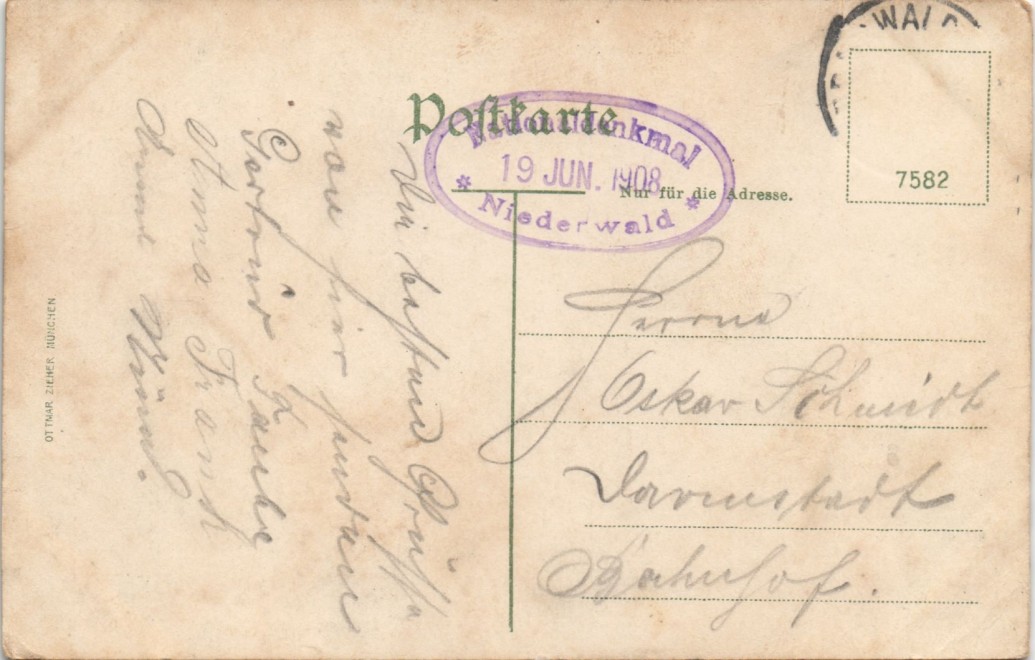 WALD
Postkarte
Nationaldenkmal
19 JUN. 1908
Niederwald
Nur für die Adresse.
7582
Herrn
Oskar Schmidt
Darmstadt
Bahnhof.
Die besten Grüße
von hier senden
Anna Frank
OTTMAR ZIEHER MÜNCHEN